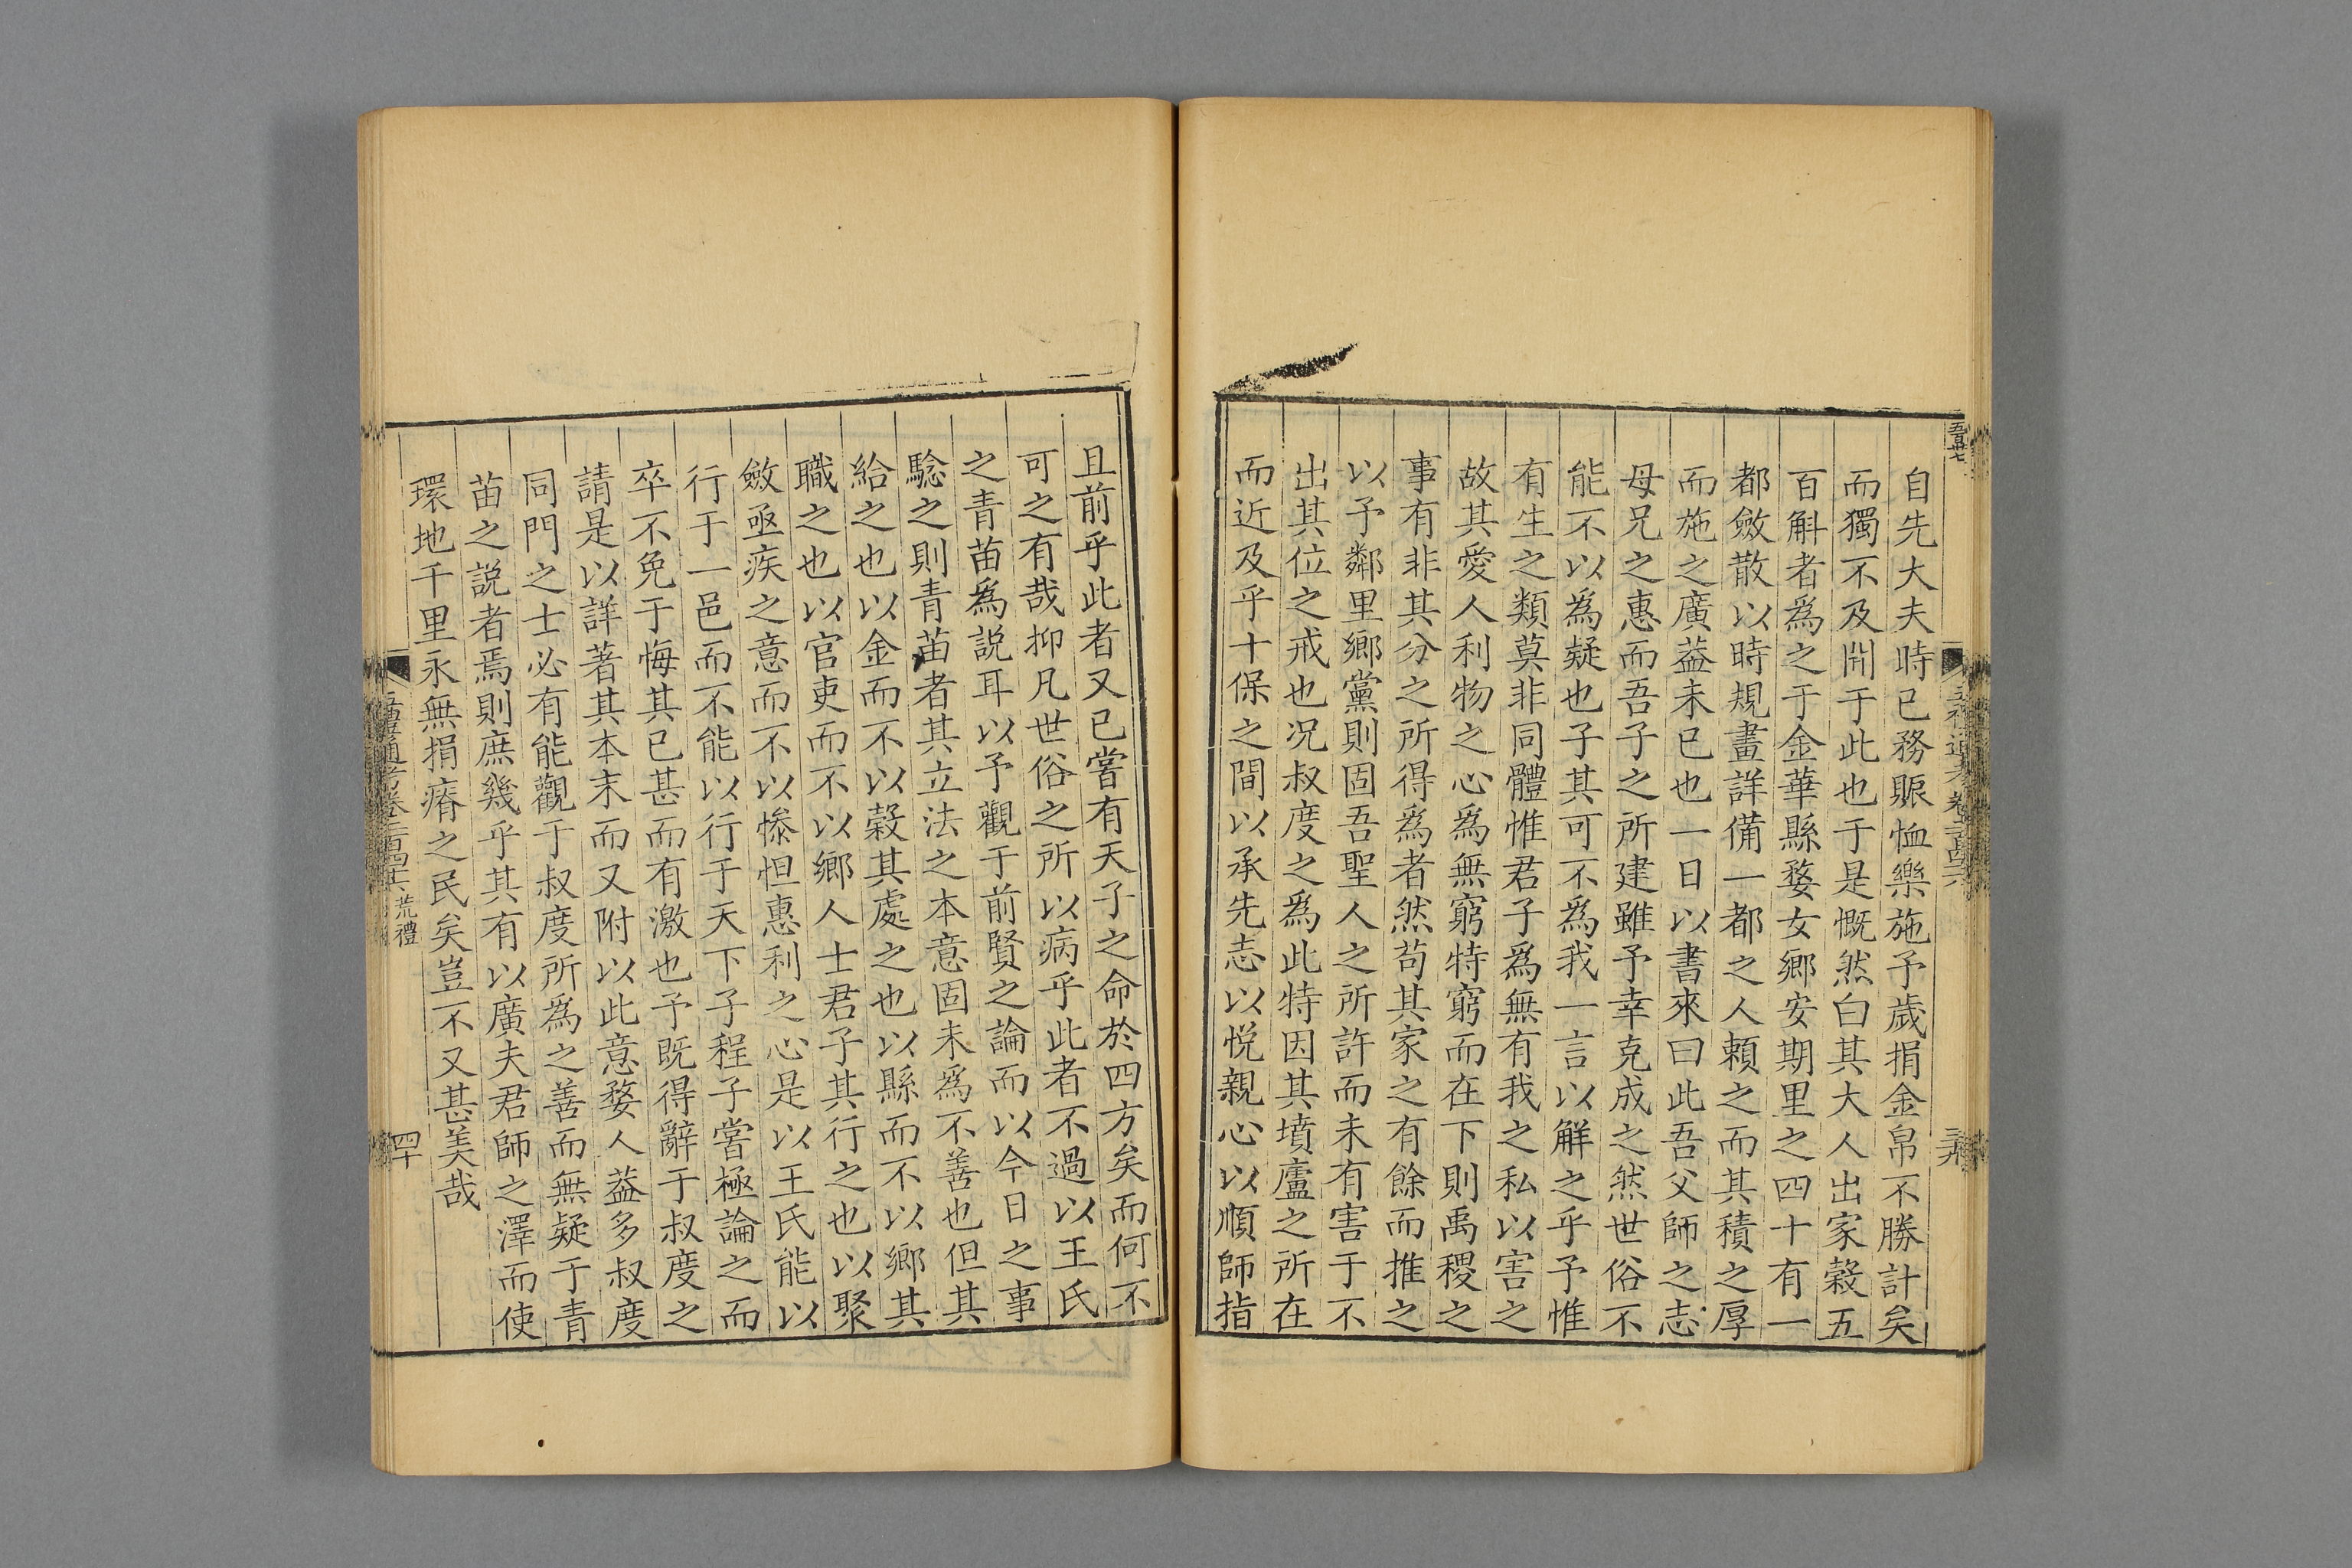 自先大夫時已務賑恤樂施予歲捐金帛不勝計矣
而獨不及閒于此也于是慨然白其大人出家穀五
百斛者爲之于金華縣婺女鄉安期里之四十有一
都斂散以時規畫詳備一都之人賴之而其積之厚
而施之廣蓋未已也一日以書來曰此吾父師之志
母兄之惠而吾子之所建雖予幸克成之然世俗不
能不以爲疑也子其可不爲我一言以解之乎予惟
有生之類莫非同體惟君子爲無有我之私以害之
故其愛人利物之心爲無窮特窮而在下則禹稷之
事有非其分之所得爲者然苟其家之有餘而推之
以予鄰里鄉黨則固吾聖人之所許而未有害于不
出其位之戒也况叔度之爲此特因其墳廬之所在
而近及乎十保之間以承先志以悅親心以順師指
且前乎此者又已嘗有天子之命於四方矣而何不
可之有哉抑凡世俗之所以病乎此者不過以王氏
之青苗爲說耳以予觀于前賢之論而以今日之事
騐之則青苗者其立法之本意固未爲不善也但其
給之也以金而不以穀其處之也以縣而不以鄉其
職之也以官吏而不以鄉人士君子其行之也以聚
斂亟疾之意而不以慘怛惠利之心是以王氏能以
行于一邑而不能以行于天下子程子嘗極論之而
卒不免于悔其已甚而有激也予旣得辭于叔度之
請是以詳著其本末而又附以此意婺人蓋多叔度
同門之士必有能觀于叔度所爲之善而無疑于青
苗之說者焉則庶幾乎其有以廣夫君師之澤而使
環地千里永無捐瘠之民矣豈不又甚美哉
荒禮
四十